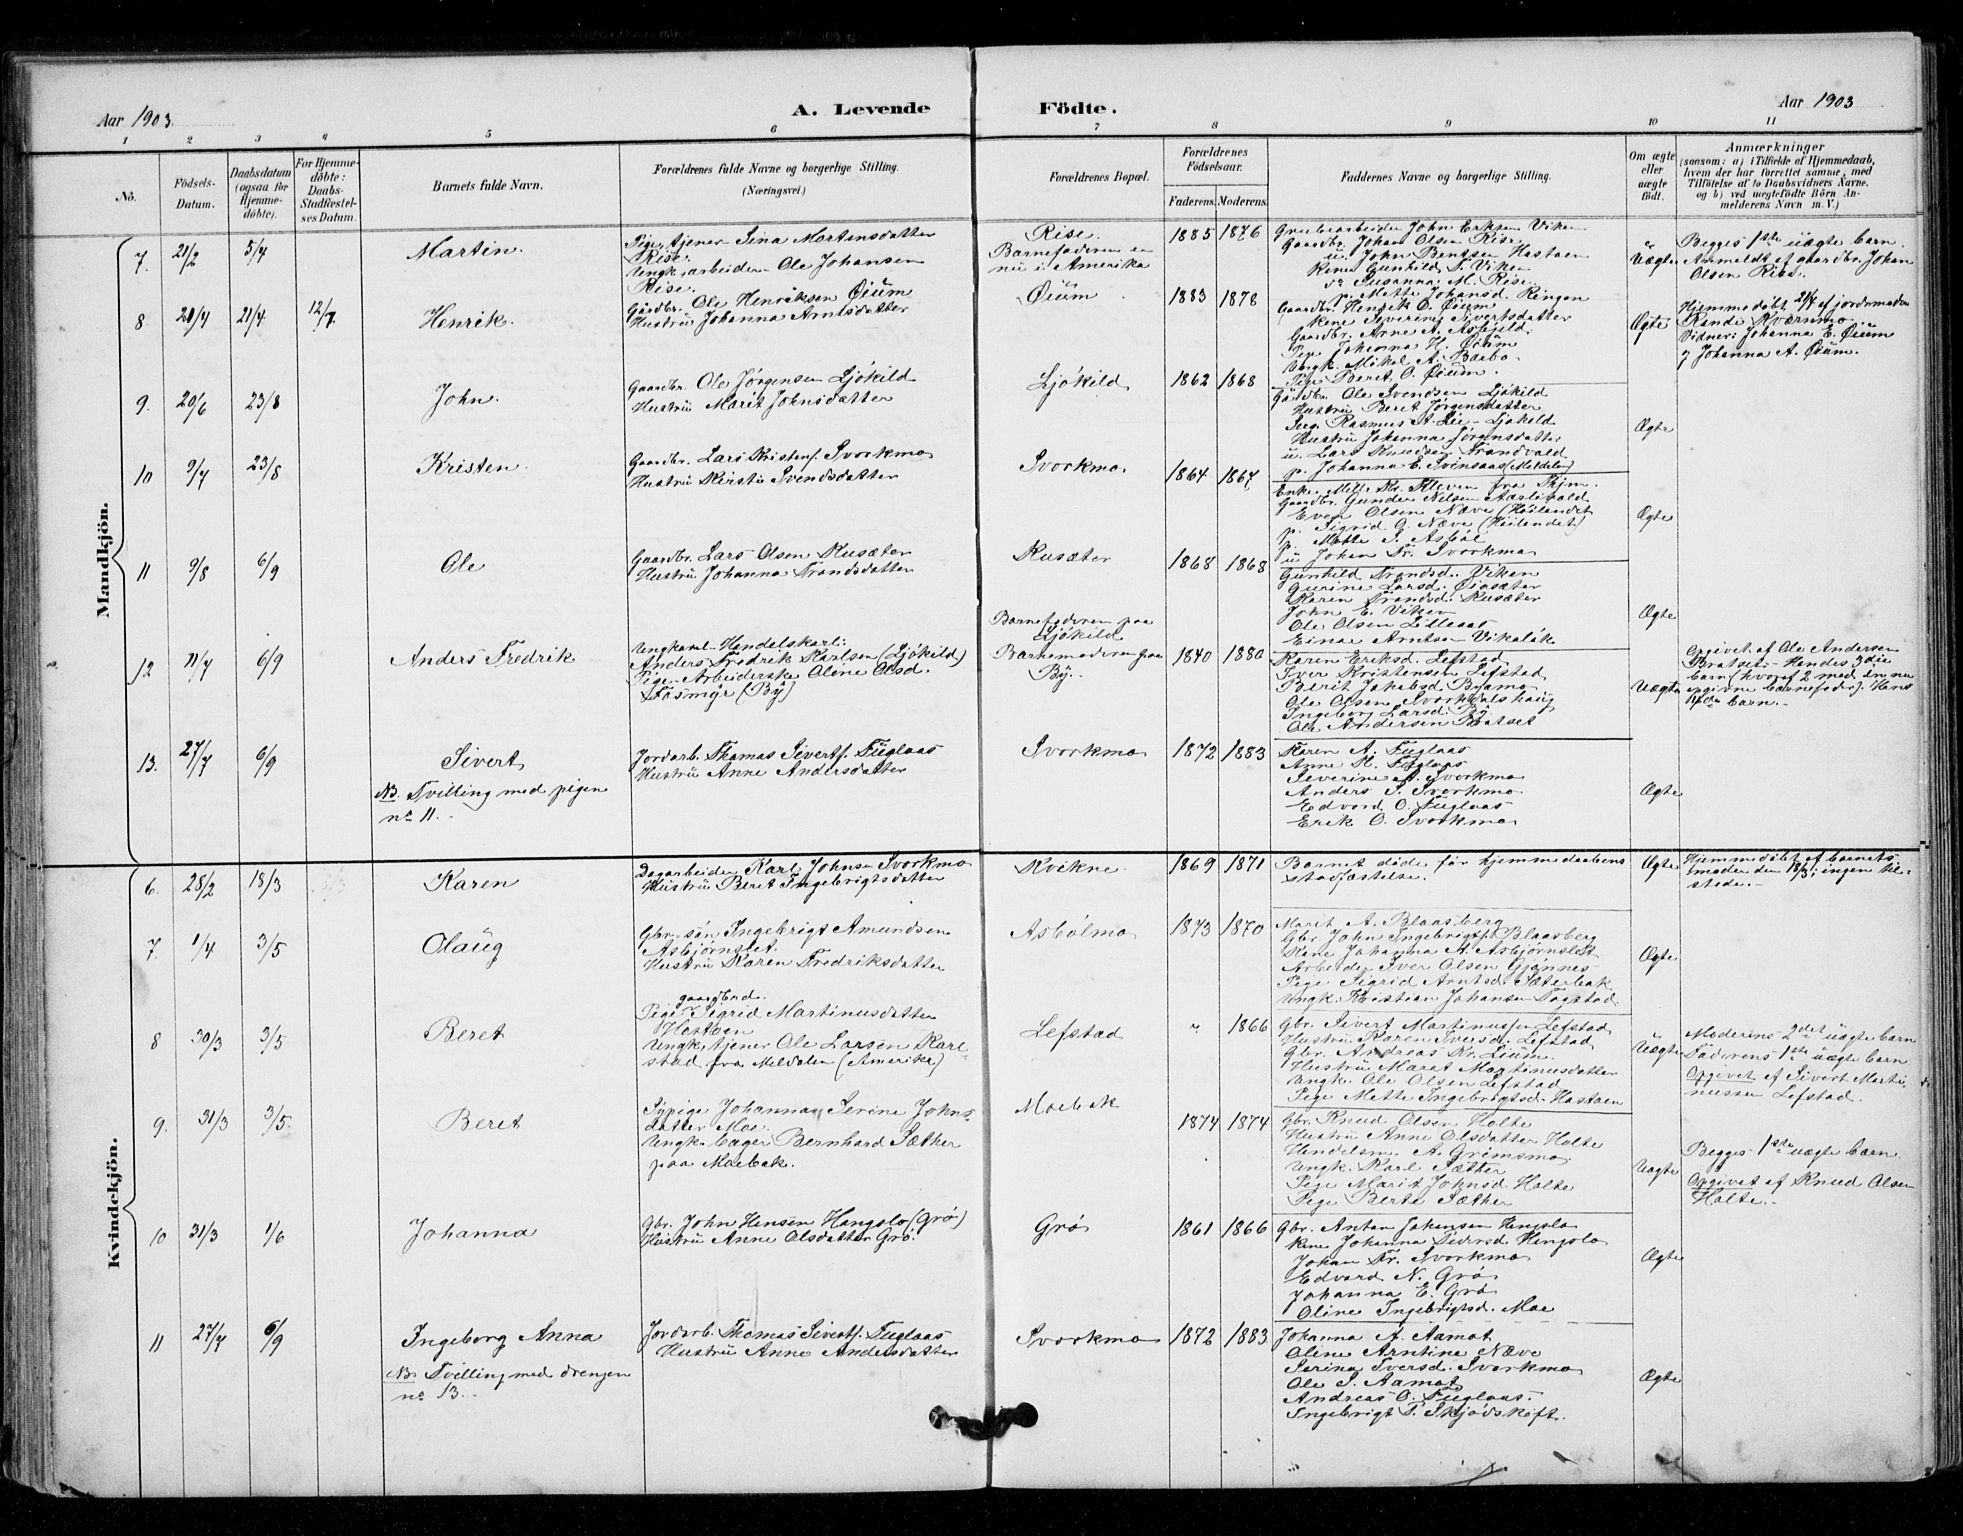 Aar 1903.
A. Levende Födte.
Aar 1903
1 2 3 4 5 6 7 8 9 10 11
No.
Födsels-
Datum.
Daabsdatum
(ogsaa for
Hjemme-
döbte).
For Hjemme-
döbte:
Daabs-
Stadfæstel-
ses Datum.
Barnets fulde Navn.
Forældrenes fulde Navne og borgerlige Stilling.
(Næringsvei.)
Forældrenes Bopæl.
Forældrenes
Födselsaar.
Faderens. Moderens.
Faddernes Navne og borgerlige Stilling.
Om ægte
eller
uægte
födt.
Anmærkninger
(saasom: a) i Tilfælde af Hjemmedaab,
hvem der har forrettet samme, med
Tilföielse af to Daabsvidners Navne.
og b) ved uægtefödte Börn An-
melderens Navn m. V.)
Mandkjön.
7. 21/2 5/4 Martin.
Pige, tjener Sina Mortensdatter
Rise.
Ungk, arbeider Ole Johansen
Rise.
Rise.
Barnefaderen er
nu i Amerika
1885 1876
Grubearbeider John Eriksen Viken
Gaardbr. Johan Olsen Rise.
u. John Bentsen Hastaen
Kone Gunhild T. Viken
Susanna M. Rise
p. Mette Johansd. Ringen
Uægte
Begges 1ste uægte barn.
Anmeldt af gaardbr. Johan
Olsen Rise.
8 20/4 21/4 12/7 Henrik.
Gårdbr. Ole Henriksen Øium
Hustru Johanna Arntsdatter
Øium
1883 1878
Gaardbr. Henrik O. Øium
Kone Severine Sivertsdatter
Gaardbr. Arne A. Aspejeld
Pige Johanna H. Øium
Ungk. Mikal A. Barbo
Pige Beret O. Øium.
Ægte
Hjemmedøbt 21/4 af jordemoder
Randi Kværnmo
Vidner: Johanna E. Øium
og Johanna A. Øium.
9. 20/6 23/8 John.
Gaardbr. Ole Jørgensen Ljökild
Hustru Marit Johnsdatter
Ljökild
1862 1868
Gårdbr. Ole Svendsen Ljökild
Hustru Beret Jørgensdatter
Serg. Rasmus A. Lie - Ljökild
Hustru Johanna Jørgensdatter
u. Lars Knudsen Strandvold
p. Johanna E. Svinsaas (Meldalen)
Ægte
10 9/7 23/8 Kristen.
Gaardbr. Lars Kristens. Svorkmo
Hustru Kirsti Svendsdatter
Svorkmo
1864 1867
Enke Mett. Kr. Kleven fra Thjm.
Gaardbr. Gunder Nilsen Aarlivold
Even Olsen Næve (Høilandet)
p. Sigrid O. Næve (Høilandet)
p. Mette I. Asböl
u Johan Fr. Svorkmo
Ægte
11 9/8 6/9 Ole
Gaardbr. Lars Olsen Kusæter
Hustru Johanna Trondsdatter
Kusæter
1868 1868
Gunhild Trondsd. Viken
Gurine Larsd. Øiasæter
Karen Trondsd. Kusæter
John E. Viken
Ole Olsen Lilleaas
Einar Arntsen Vikalök
Ægte
12 11/7 6/9 Anders Fredrik
Ungkarl Handelskarl:
Anders Fredrik Karlsen (Ljökild)
Pige Arbeiderske Oline Olsd.
Fosmyr (By)
Barnefaderen paa
Ljökild
Barnemoderen paa
By.
1840 1880
Karen Eriksd. Lefstad
Iver Kristensen Lefstad
Berit Jakobsd. Byamo
Ole Olsen Svorkdalshaug
Ingeborg Larsd. By
Ole Andersen Bratset
Uægte
opgivet af Ole Andersen
Bratset. - Hendes 3die
barn (hvoraf 2 med den nu
opgivne barnefader). Hans
4de barn.
13. 27/7 6/9 Sivert
NB. Tvilling med pigen
no 11.
Jordarb. Thomas Siverts. Fuglaas
Hustru Anne Andersdatter
Svorkmo
1872 1883
Karen A. Fuglaas
Anne H. Fuglaas
Severine A. Svorkmo
Anders I. Svorkmo.
Edvard O. Fuglaas
Erik O. Svorkmo
Ægte
Kvindekjön.
6. 28/2 18/3 Karen
Dagarbeider Karl Johnsen Svorkmo
Hustru Beret Ingebrigtsdatter
Kvikne
1869 1871
Barnet döde för hjemmedaabens
stadfæstelse.
Ægte
Hjemmedøbt af barnets
moder den 18/3; ingen til-
stede.
7. 1/4 3/5 Olaug
Gbr. sön Ingebrigt Amundsen
Asbjørnslet.
Hustru Karen Fredriksdatter
Asbölmo
1873 1870
Marit A. Blaasberg
Gbr. John Ingebrigts. Blaasberg
Kone Johanna A. Asbjørnslett
Arbeider Iver Olsen Gjønnes
Pige Sigrid Arntsd. Sæterbak
Ungk. Kristian Johansen Fagstad
Ægte
8 30/3 3/5 Beret
gaardbrd.
Pige Sigrid Martinusdatter
Hastaen
Ungk, tjener Ole Larsen Karl-
stad fra Meldalen (Amerika)
Lefstad
" 1866
Gbr. Sivert Martinussen Lefstad
Hustru Karen Iversd. Lefstad
Gbr. Andreas Kr. Lium.
Hustru Maret Martinusdatter
Ungk. Ole Olsen Lefstad
Pige Mette Ingebrigtsd. Hastaen
Uægte
Moderens 2det uægte barn
Faderens 1ste uægte barn
Opgivet af Sivert Marti-
nussen Lefstad.
9. 31/3 3/5. Beret
Sypige Johanna Serine Johns-
datter Moe.
Ungk. bager Bernhard Sæther
paa Moebak.
Moebak
1874 1874
Gbr. Knud Olsen Holte
Hustru Anne Olsdatter Holte
Handelsm. A. Grimsmo
Ungk. Karl Sæther
Pige Marit Johnsd. Holte
Pige Berte Sæther
Uægte
Begges 1ste uægte barn.
Opgivet af Knud Olsen
Holte.
10 31/3 1/6 Johanna
Gbr. John Hensen Hongslo (Grö)
Hustru Anne Olsdatter Grö.
Grö
1861 1866
Gbr. Anton Johansen Hongslo
Kone Johanna Pedersd. Hongslo
Johan Fr. Svorkmo
Edvard N. Grö
Johanna E. Grö
Oline Ingebrigtsd. Moe
Ægte
11 27/7 6/9 Ingeborg Anna
NB. Tvilling med drengen
no 13.
Jordarb. Thomas Siverts. Fuglaas
Hustru Anne Andersdatter
Svorkmo
1872 1883
Johanna A. Aamot
Oline Arntine Næve
Serina Iversd. Svorkmo
Ole I. Aamot
Andreas O. Fuglaas.
Ingebrigt P. Skjödskift.
Ægte